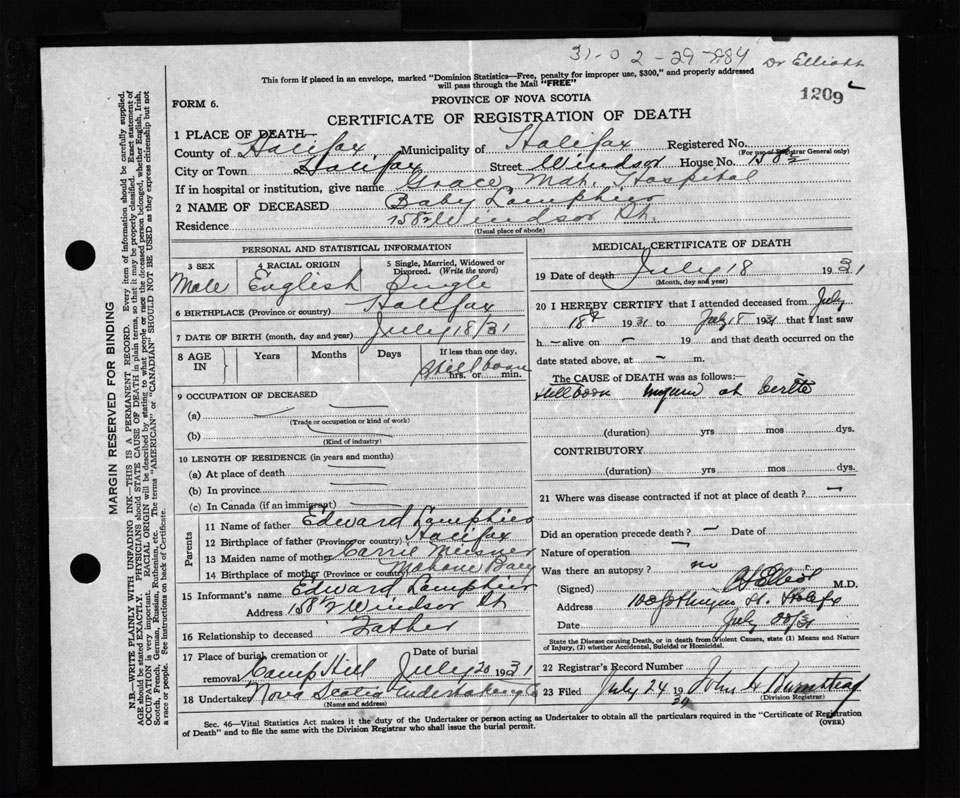 31-0 2-29-784 Dr Elliott
This form if placed in an envelope, marked "Dominion Statistics—Free, penalty for improper use, $300," and properly addressed
will pass through the Mail "FREE"
1209
PROVINCE OF NOVA SCOTIA
FORM 6.
CERTIFICATE OF REGISTRATION OF DEATH
1 PLACE OF DEATH—
County of Halifax Municipality of Halifax Registered No.
(For use of Registrar General only)
City or Town Halifax Street Windsor House No. 158½
If in hospital or institution, give name Grace Mat. Hospital
2 NAME OF DECEASED Baby Lamphier
Residence 158½ Windsor St.
(Usual place of abode)
PERSONAL AND STATISTICAL INFORMATION
3 SEX 4 RACIAL ORIGIN 5 Single, Married, Widowed or
Divorced. (Write the word)
Male English Single
6 BIRTHPLACE (Province or country) Halifax
7 DATE OF BIRTH (month, day and year) July 18/31
8 AGE IN Years Months Days If less than one day,
Stillborn
hrs. or min.
9 OCCUPATION OF DECEASED
(a)
(Trade or occupation or kind of work)
(b)
(Kind of industry)
10 LENGTH OF RESIDENCE (in years and months)
(a) At place of death
(b) In province
(c) In Canada (if an immigrant)
Parents
11 Name of father Edward Lamphier
12 Birthplace of father (Province or country) Halifax
13 Maiden name of mother Carrie Meisner
14 Birthplace of mother (Province or country) Mahone Bay
15 Informant's name Edward Lamphier
Address 158½ Windsor St
16 Relationship to deceased Father
17 Place of burial, cremation or Date of burial
removal Camp Hill July 20 1931
18 Undertaker Nova Scotia Undertaking Co
(Name and address)
MEDICAL CERTIFICATE OF DEATH
19 Date of death July 18 1931
(Month, day and year)
20 I HEREBY CERTIFY that I attended deceased from July
18 1931 to July 18 1931 that I last saw
h — alive on — 19 and that death occurred on the
date stated above, at — m.
The CAUSE of DEATH was as follows:—
Stillborn at birth
(duration) yrs mos dys.
CONTRIBUTORY
(duration) yrs. mos. dys.
21 Where was disease contracted if not at place of death? —
Did an operation precede death? — Date of
Nature of operation —
Was there an autopsy? no
(Signed) Elliot M.D.
Address St. Halifx
Date July 20/31
State the Disease causing Death, or in death from Violent Causes, state (1) Means and Nature
of Injury, (2) whether Accidental, Suicidal or Homicidal.
22 Registrar's Record Number
23 Filed July 24 1931 John
(Division Registrar)
Sec. 46—Vital Statistics Act makes it the duty of the Undertaker or person acting as Undertaker to obtain all the particulars required in the "Certificate of Registration
of Death" and to file the same with the Division Registrar who shall issue the burial permit.
(OVER)
MARGIN RESERVED FOR BINDING
N.B.—WRITE PLAINLY WITH UNFADING INK—THIS IS A PERMANENT RECORD. Every item of information should be carefully supplied.
AGE should be stated EXACTLY. PHYSICIANS should STATE CAUSE OF DEATH in plain terms, so that it may be properly classified. Exact statement of
OCCUPATION is very important. RACIAL ORIGIN will be described by stating to what people or race the deceased person belonged, whether English, Irish,
Scotch, French, German, Russian, Ruthenian, etc. The terms "AMERICAN" or "CANADIAN" SHOULD NOT BE USED as they express citizenship but not
a race or people. See instructions on back of Certificate.